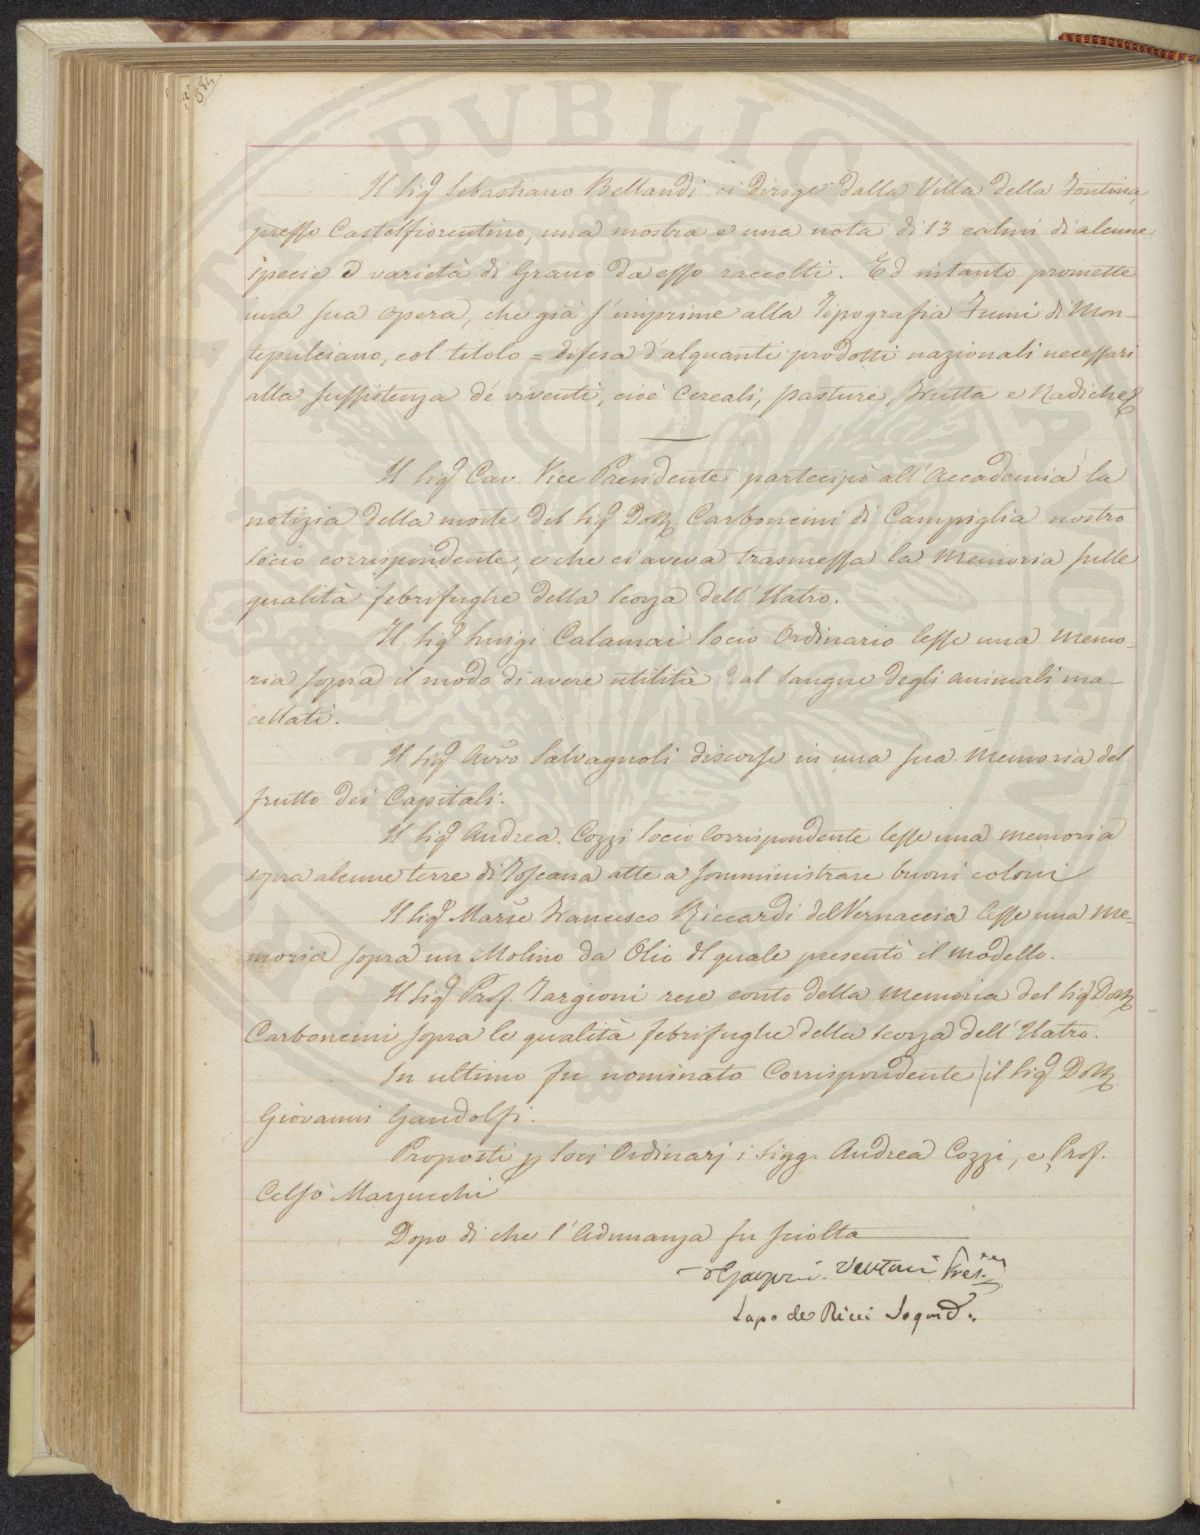 384
Il Sig.r Sebastiano Bellandi ci dirige dalla Villa della Fontina,
presso Castelfiorentino, una mostra e una nota di 13 calmi di alcune
specie e varietà di Grano da esso raccolti. Ed intanto promette
una sua opera, che già s'imprime alla Tipografia Fumi di Mon-
tepulciano, col titolo = difesa d'alquanti prodotti nazionali necessari
alla sussistenza de' viventi, cioè Cereali, pasture, Frutta e Radiche
Il Sig.r Cav. Vice Presidente partecipò all'Accademia la
notizia della morte del Sig.r Dott. Carboncini di Campiglia nostro
Socio corrispondente, e che ci aveva trasmessa la Memoria sulle
qualità febrifughe della Scorza dell'Ilatro.
Il Sig.r Luigi Calamai Socio Ordinario lesse una Memo-
ria sopra il modo di avere utilità al Sangue degli animali ma-
cellati.
Il Sig.r Avv.o Salvagnoli discorse in una sua Memoria del
frutto dei Capitali.
Il Sig.r Andrea Cozzi Socio Corrispondente lesse una memoria
sopra alcune terre di Toscana atte a somministrare buoni colori
Il Sig.r Mar.se Francesco Riccardi del Vernaccia lesse una me-
moria sopra un Molino da Olio il quale presentò il modello.
Il Sig.r Prof. Targioni rese conto della Memoria del Sig.r Dott.
Carboncini sopra le qualità febrifughe della scorza dell'Ilatro.
In ultimo fu nominato Corrispondente il Sig.r Dott.
Giovanni Gandolfi.
Proposti p Socj Ordinarj i Sigg. Andrea Cozzi, e Prof.
Celso Marzucchi
Dopo di che l'Adunanza fu sciolta
Venturi Pres.
Lapo de Ricci Seg.
PVBLIC